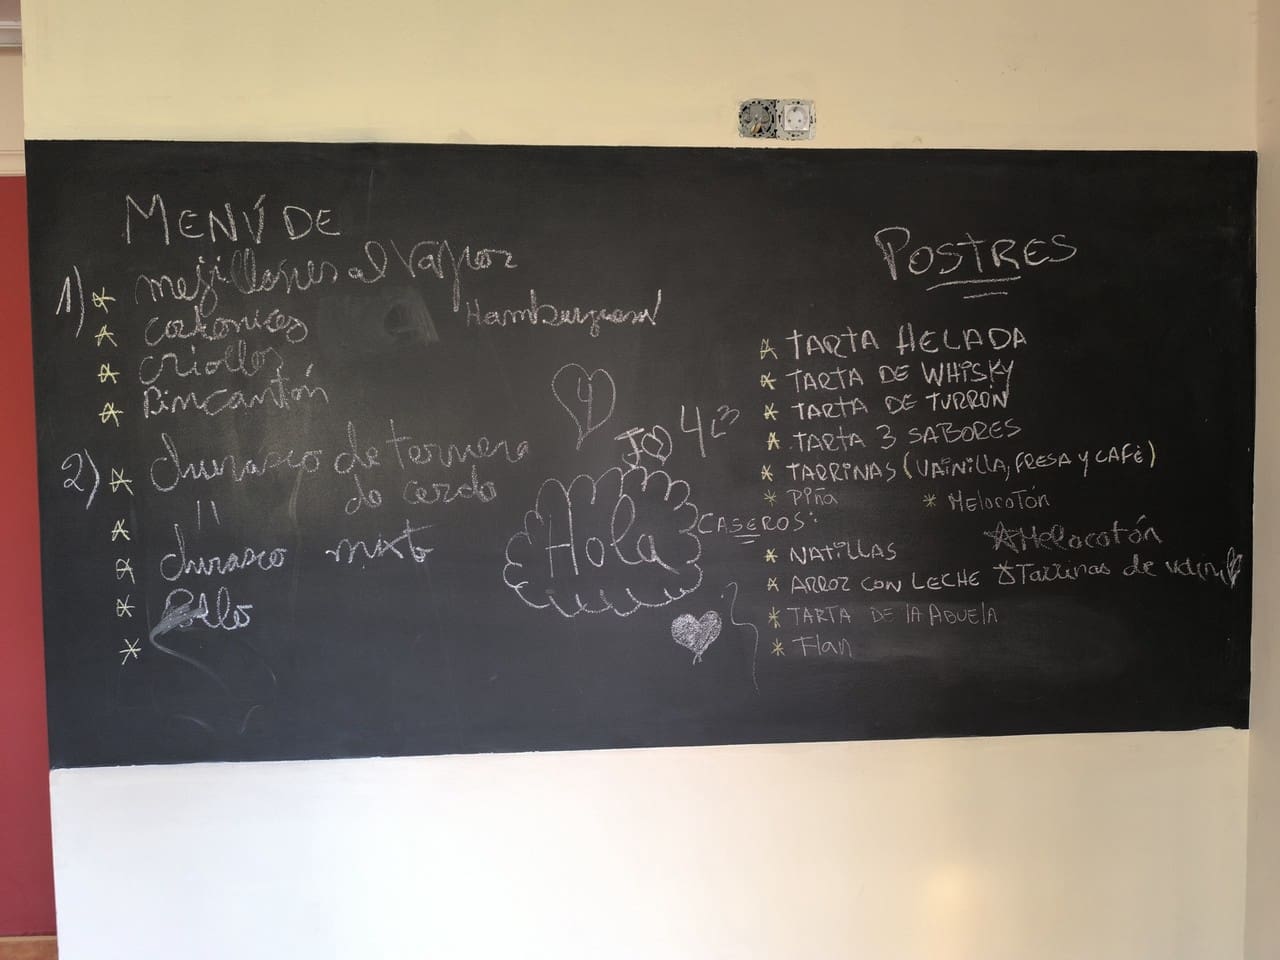 MENÚ DE
1) * mejillones al vapor
Hamburguesa
*
* criollos
* Pincantón
2) * churasco de ternera
* " de cerdo
* churasco mixto
* Pollo
*
4
JO 4 <3
Hola
POSTRES
* TARTA HELADA
* TARTA DE WHISKY
* TARTA DE TURRÓN
* TARTA 3 SABORES
* TARRINAS (VAINILLA, FRESA Y CAFÉ)
* Piña * Melocotón
CASEROS:
* NATILLAS * Melocotón
* ARROZ CON LECHE * Tarrinas de
* TARTA DE LA ABUELA
* Flan